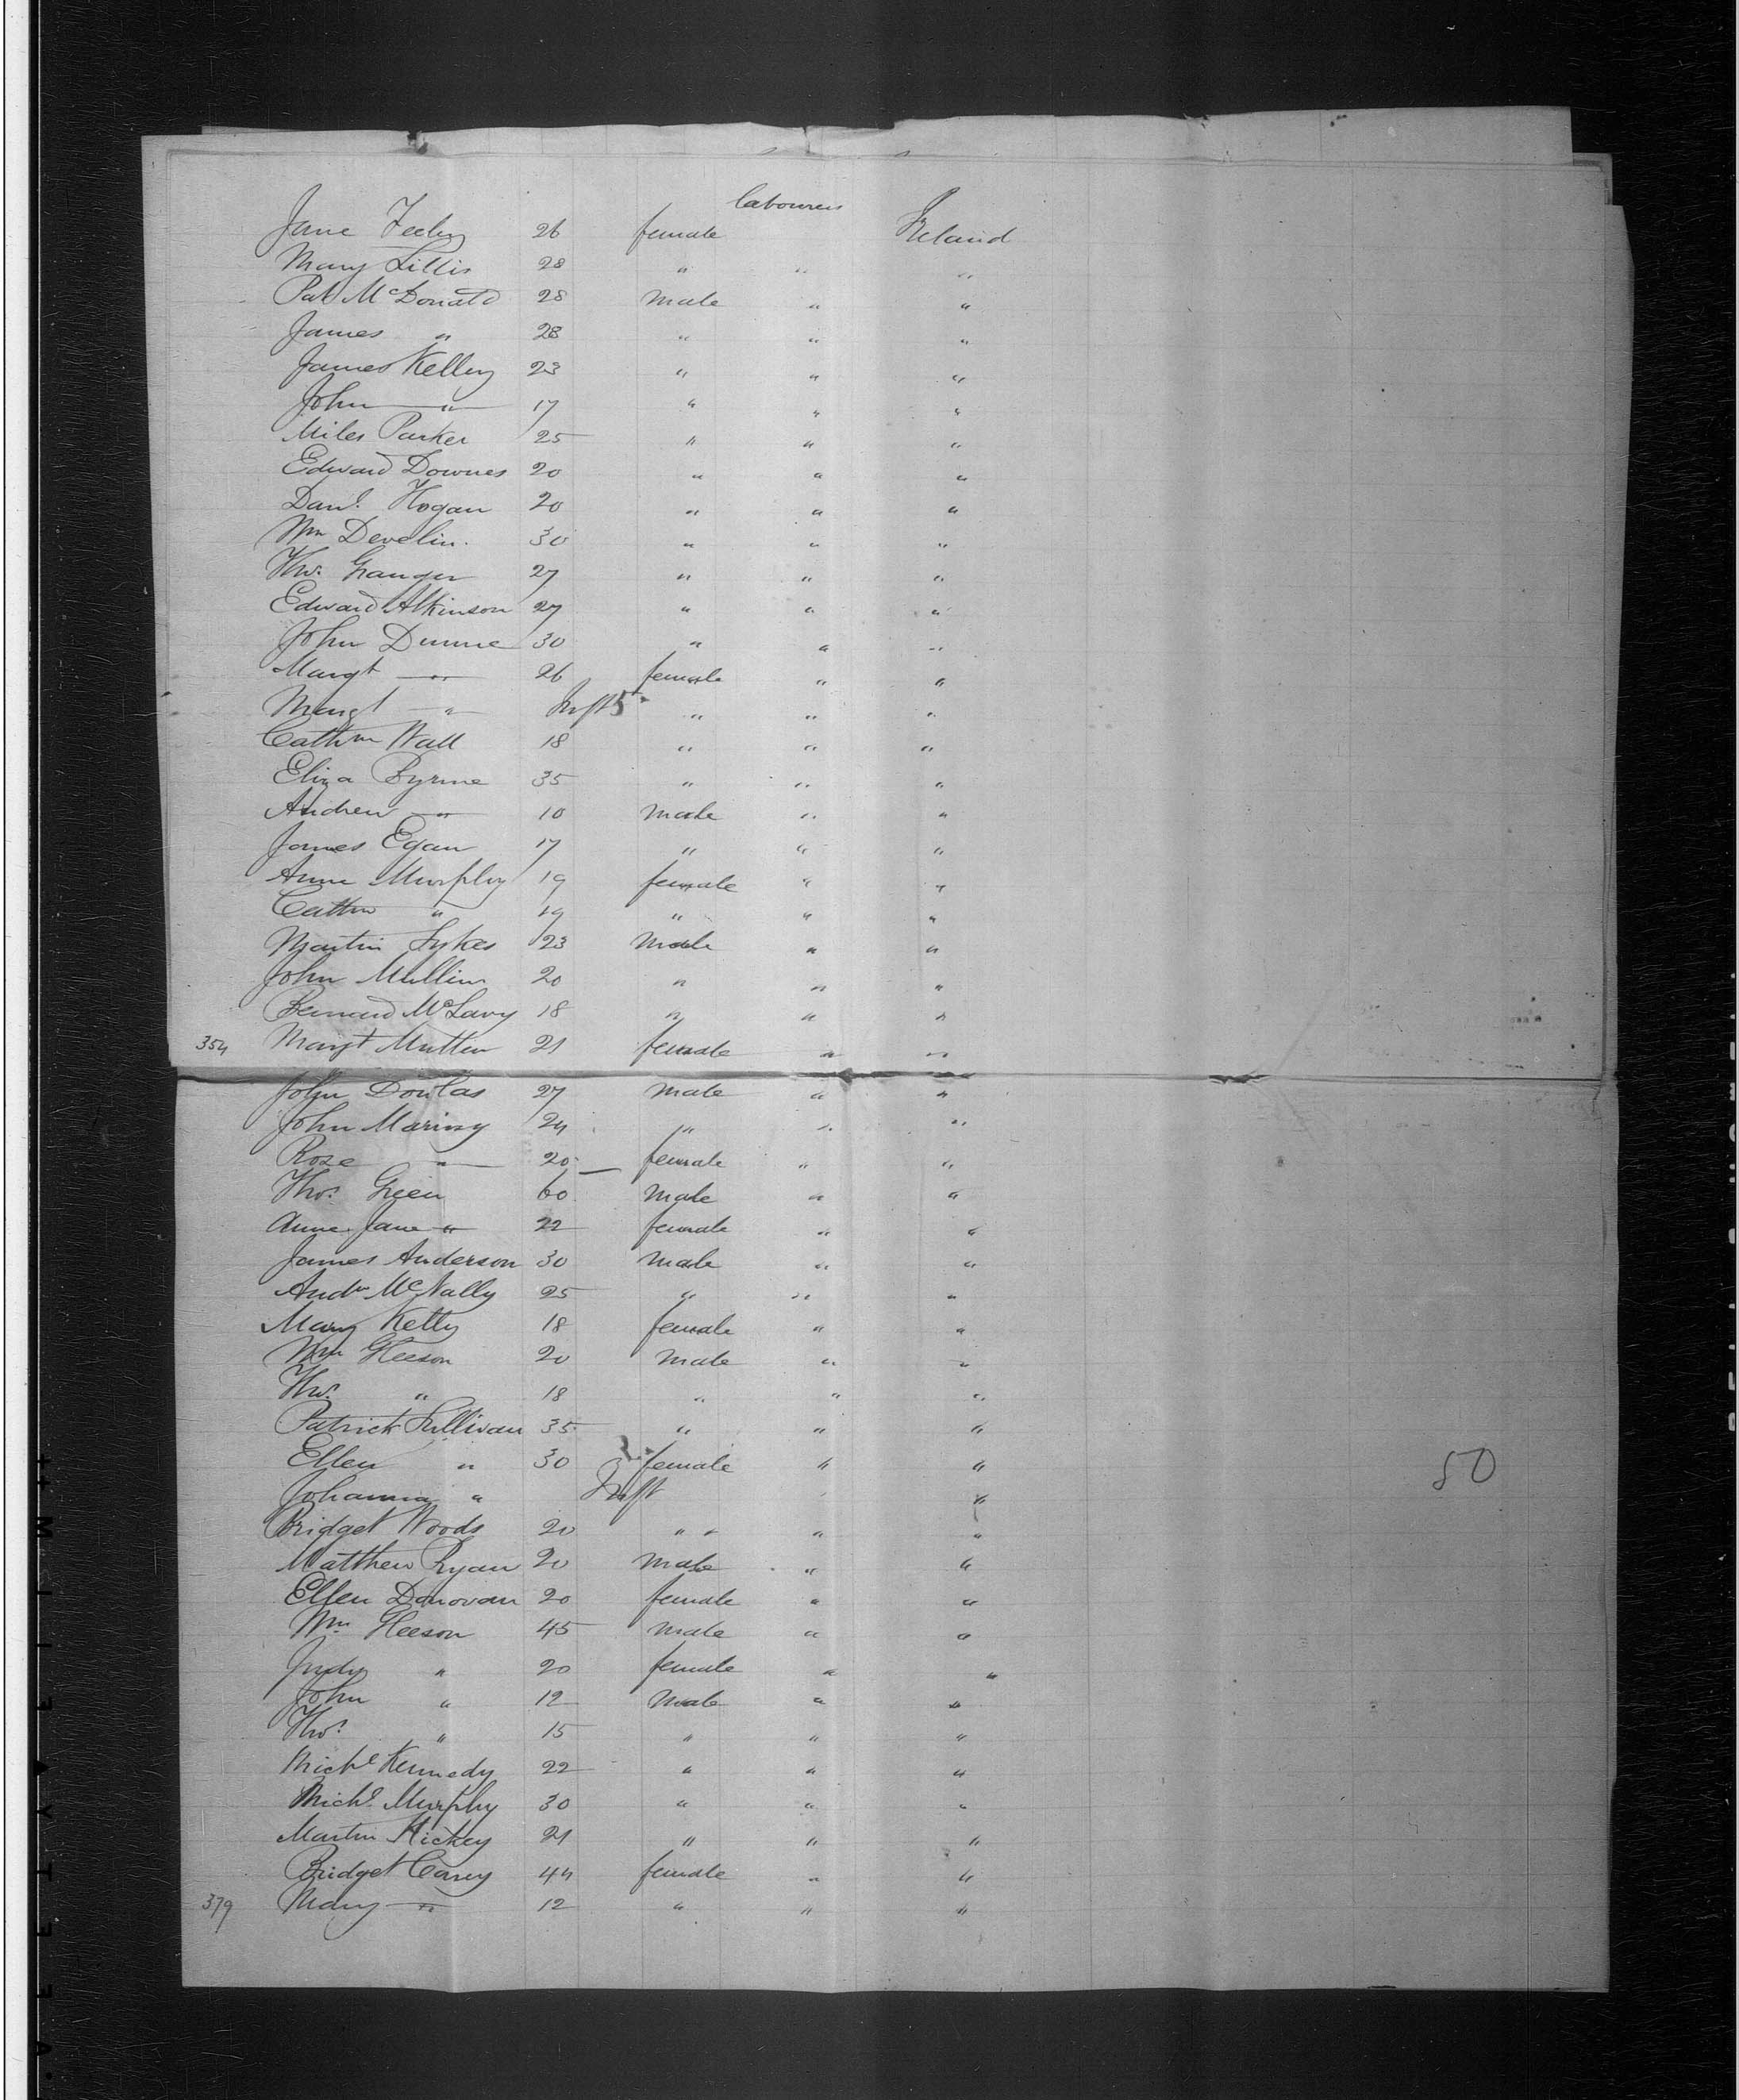 labourers
Jane Feeley 26 female Ireland
Mary Lillis 28 " " "
Pat McDonald 28 male " "
James " 28 " " "
James Kelley 23 " " "
John " 17 " " "
Miles Parker 25 " " "
Edward Downes 20 " " "
Danl. Hogan 20 " " "
Wm Develin. 30 " " "
Thos. Granger 27 " " "
Edward Atkinson 27 " " "
John Dunne 30 " " "
Margt " 26 female " "
Margt " Inft 5 " " "
Cathne Wall 18 " " "
Eliza Byrne 35 " " "
Andrew " 10 male " "
James Egan 17 " " "
Anne Murphy 19 female " "
Cathne " 19 " " "
Martin Sykes 23 male " "
John Mullin 20 " " "
Bernard McLavy 18 " " "
354 Margt Mutten 21 female " "
John Doulas 27 male " "
John 24 " " "
Rose " 20 female " "
Thos. Green 60 male " "
Anne Jane " 22 female " "
James Anderson 30 male " "
Andw McNally 25 " " "
Mary Kelly 18 female " "
Wm Gleeson 20 male " "
Thos. " 18 " " "
Patrick Sullivan 35 " " "
Ellen " 30 female " "
Johanna " Inft "
Bridget Woods 20 " " " "
Matthew Ryan 20 male " "
Ellen Donovan 20 female " "
Wm Gleeson 45 male " "
Judy " 20 female " "
John " 12 male " "
Thos. " 15 " " "
Michl Kennedy 22 " " "
Michl. Murphy 30 " " "
Martin Hickey 21 " " "
Bridget Carey 44 female " "
379 Mary " 12 " " "
50